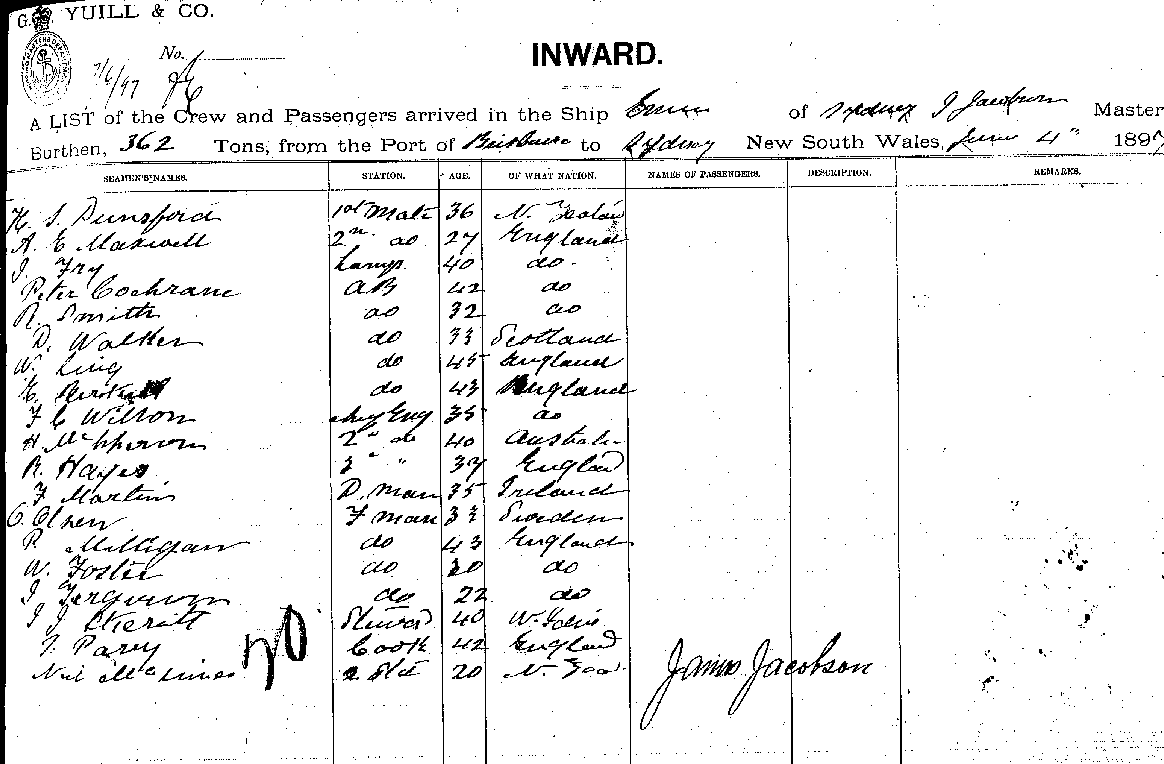 G. YUILL & CO.
No.
7/6/97
INWARD.
A LIST of the Crew and Passengers arrived in the Ship of Sydney J Jacobson Master
Burthen, 362 Tons, from the Port of Brisbane to Sydney New South Wales, June 4" 1897
SEAMEN'S NAMES. STATION. AGE. OF WHAT NATION. NAMES OF PASSENGERS. DESCRIPTION. REMARKS.
H. S. Dunsford 1st Mate 36 N.
A. E Maxwell 2nd do 27 England
J. Fry Lamps 40 do
Peter Cochrane AB 42 do
R. Smith do 32 do
D. Walker do 33 Scotland
W. Ling do 45 England
H. do 43 England
F C Wilson Eng 35 do
H McPherson 2" do 40 Austral
R. Hayes 3" " 37 England
F Martin D. man 35 Ireland
O. Olsen F man 33 Sweden
P. Milligan do 43 England
W. Foster do 20 do
J Ferguson do 22 do
J J Skeritt Steward 40 W.
T. Parry Cook 42 England
Neil McInnes 2 Std 20 N. Zea
20
James Jacobson